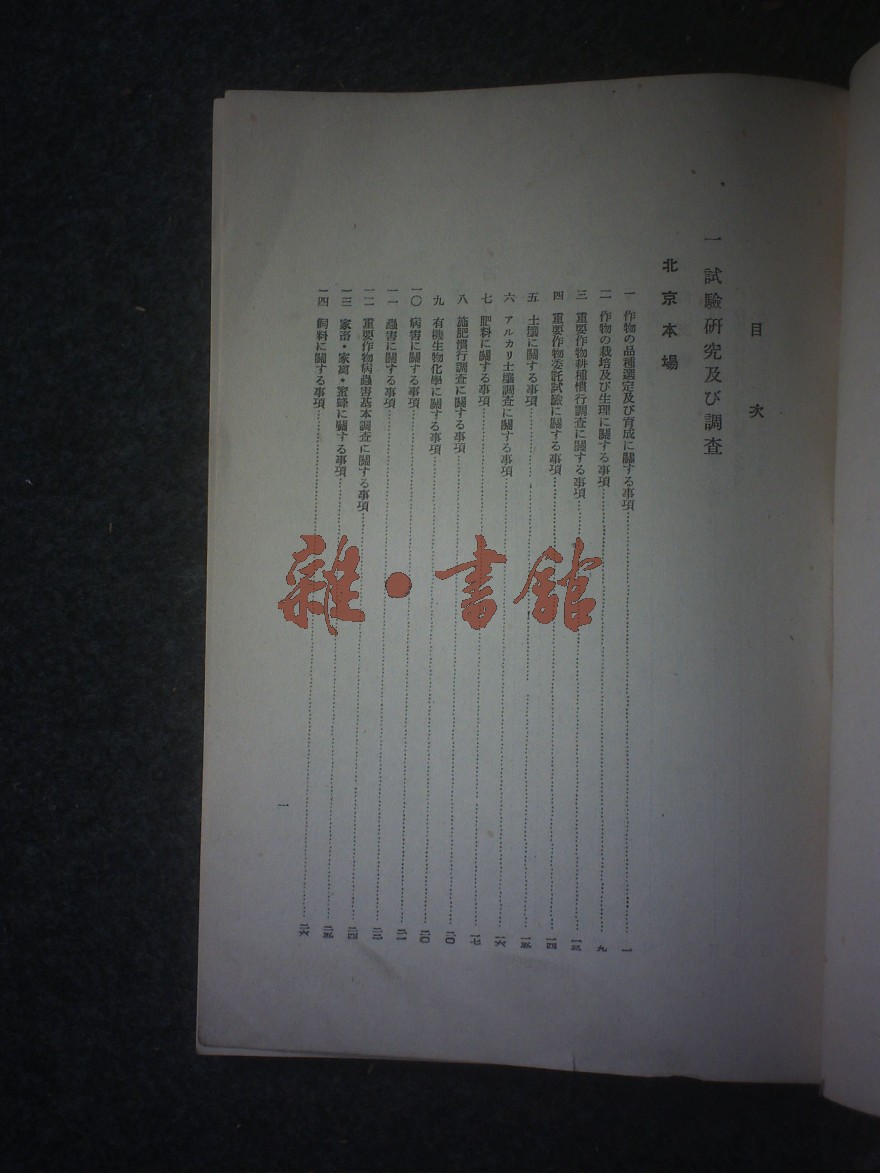 目次
一 試驗硏究及び調査
北京本場
一 作物の品種選定及び育成に關する事項……一
二 作物の栽培及び生理に關する事項……九
三 重要作物耕種慣行調査に關する事項……一三
四 重要作物委託試驗に關する事項……一四
五 土壤に關する事項……一五
六 アルカリ土壤調査に關する事項……一六
七 肥料に關する事項……一七
八 施肥慣行調査に關する事項……二〇
九 有機生物化學に關する事項……二〇
一〇 病害に關する事項……二一
一一 蟲害に關する事項
一二 重要作物病蟲害基本調査に關する事項……二四
一三 家畜・家禽・蜜蜂に關する事項……二五
一四 飼料に關する事項……二六
一
雜·書館